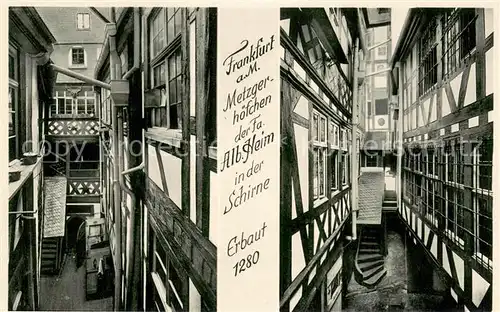 Frankfurt
a. M.
Metzger-
höfchen
der Fa.
Alb. Heim
in der
Schirne
Erbaut
1280